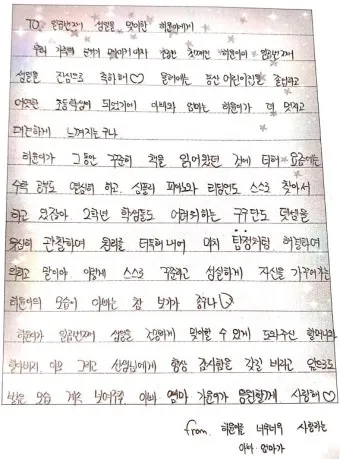 TO. 일곱번째 생일을 맞이한 희윤이에게
우리 가족의 보배가 맏이이자 첫째인 희윤이의 일곱번째
생일을 진심으로 축하해♡ 올해에는 병산 어린이집을 졸업하고
어엿한 초등학생이 되었기에 아빠와 엄마는 희윤이가 더 멋지고
대견하게 느껴지는구나.
희윤이가 그동안 꾸준히 책을 읽어왔던 것에 더해 요즘에는
수학 공부도 열심히 하고, 심플리 피아노와 리딩앤도 스스로 찾아서
하고 있잖아 2학년 학생들도 어려워하는 구구단도 덧셈을
유심히 관찰하여 원리를 터득해 내어 마치 탐정처럼 해결하여
의리고 말이야 이렇게 스스로 꾸준하고 성실하게 자신을 가꾸어가는
희윤이의 모습이 아빠는 참 보기가 좋구나
희윤이가 일곱번째 생일을 건강하게 맞이할 수 있게 도와주신 할머니와
할아버지, 이모 그리고 선생님에게 항상 감사함을 갖길 바라고 앞으로도
밝은 모습 계속 보여주렴. 아빠 엄마 가윤이가 응원할게 사랑해♡
from. 희윤이를 너무너무 사랑하는
아빠 엄마가